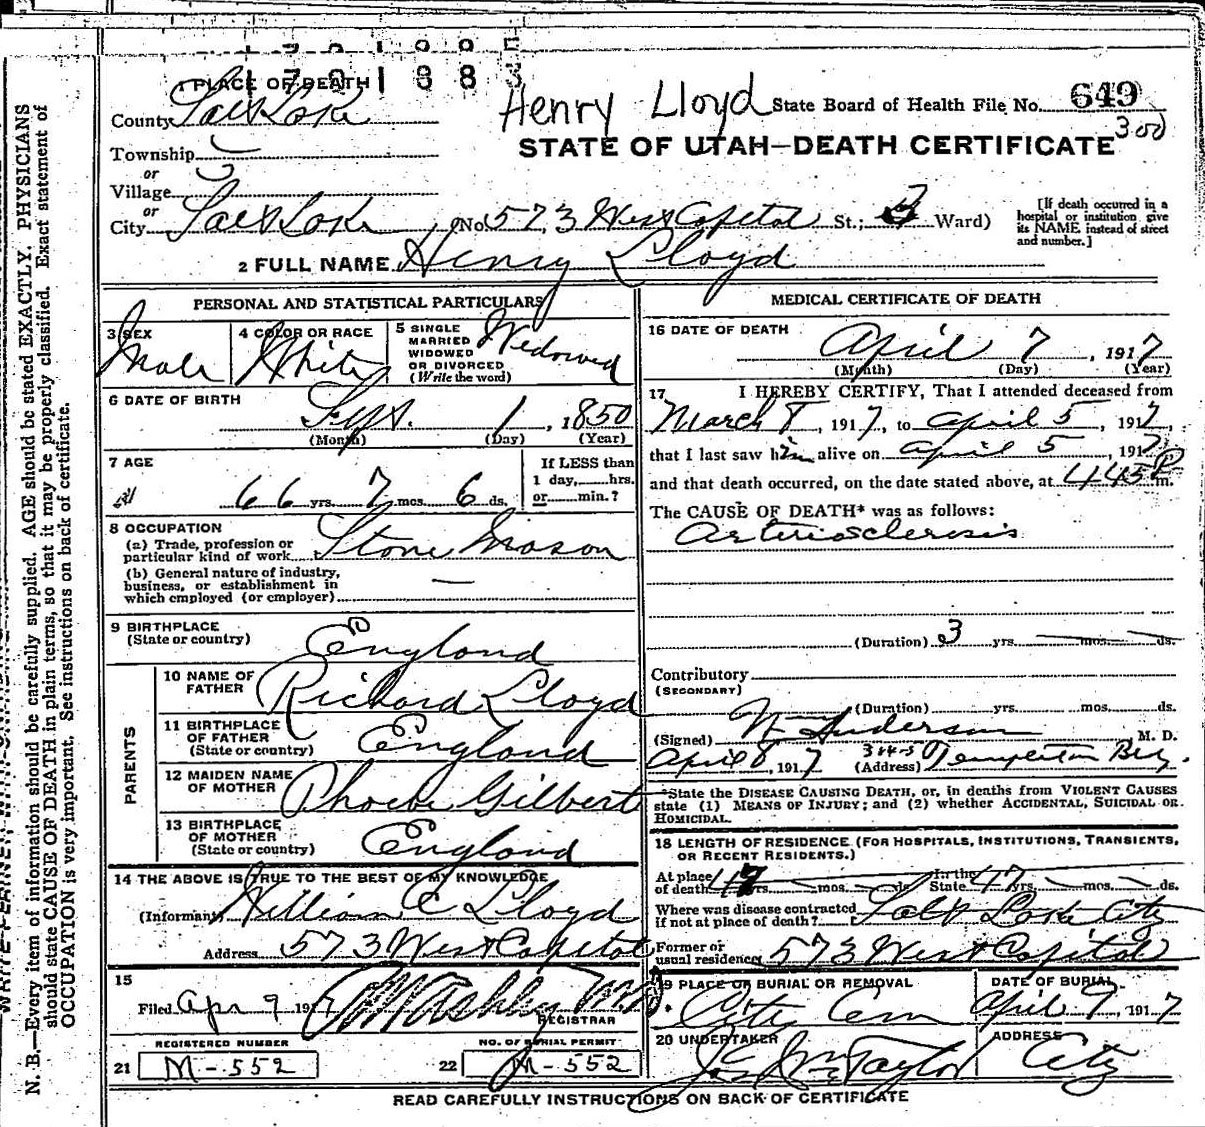 1 PLACE OF DEATH
1701883
Henry Lloyd State Board of Health File No. 649
300
County Salt Lake
STATE OF UTAH—DEATH CERTIFICATE
Township
or
Village
or
City Salt Lake (No. 573 West Capitol St.; 3 Ward)
[If death occurred in a hospital or institution give its NAME instead of street and number.]
2 FULL NAME Henry Lloyd
PERSONAL AND STATISTICAL PARTICULARS
3 SEX Male
4 COLOR OR RACE White
5 SINGLE MARRIED WIDOWED OR DIVORCED (Write the word) Widowed
6 DATE OF BIRTH
Sept. 1, 1850
(Month) (Day) (Year)
7 AGE
66 yrs. 7 mos. 6 ds.
If LESS than 1 day,....hrs. or....min.?
8 OCCUPATION
(a) Trade, profession or particular kind of work Stone Mason
(b) General nature of industry, business, or establishment in which employed (or employer) —
9 BIRTHPLACE
(State or country) England
PARENTS
10 NAME OF FATHER Richard Lloyd
11 BIRTHPLACE OF FATHER (State or country) England
12 MAIDEN NAME OF MOTHER Phoebe Gilbert
13 BIRTHPLACE OF MOTHER (State or country) England
14 THE ABOVE IS TRUE TO THE BEST OF MY KNOWLEDGE
(Informant) William C Lloyd
Address 573 West Capitol
15
Filed Apr 9 1917
REGISTRAR
REGISTERED NUMBER
21 M-552
NO. OF BURIAL PERMIT
22 M-552
MEDICAL CERTIFICATE OF DEATH
16 DATE OF DEATH
April 7, 1917
(Month) (Day) (Year)
17 I HEREBY CERTIFY, That I attended deceased from
March 8, 1917, to April 5, 1917,
that I last saw him alive on April 5, 1917
and that death occurred, on the date stated above, at 445 P m.
The CAUSE OF DEATH* was as follows:
Arteriosclerosis
(Duration) 3 yrs. — mos. — ds.
Contributory
(SECONDARY)
(Duration) yrs. mos. ds.
(Signed) Anderson, M. D.
April 8, 1917 (Address) Templeton Bldg.
*State the DISEASE CAUSING DEATH, or, in deaths from VIOLENT CAUSES
state (1) MEANS OF INJURY; and (2) whether ACCIDENTAL, SUICIDAL OR
HOMICIDAL.
18 LENGTH OF RESIDENCE (FOR HOSPITALS, INSTITUTIONS, TRANSIENTS,
OR RECENT RESIDENTS.)
At place of death yrs. — mos. — ds. In the State 47 yrs. — mos. — ds.
Where was disease contracted if not at place of death? Salt Lake City
Former or usual residence 573 West Capitol
19 PLACE OF BURIAL OR REMOVAL City Cem
DATE OF BURIAL April 9, 1917
20 UNDERTAKER Taylor
ADDRESS City
READ CAREFULLY INSTRUCTIONS ON BACK OF CERTIFICATE
N. B.—Every item of information should be carefully supplied. AGE should be stated EXACTLY. PHYSICIANS
should state CAUSE OF DEATH in plain terms, so that it may be properly classified. Exact statement of
OCCUPATION is very important. See instructions on back of certificate.